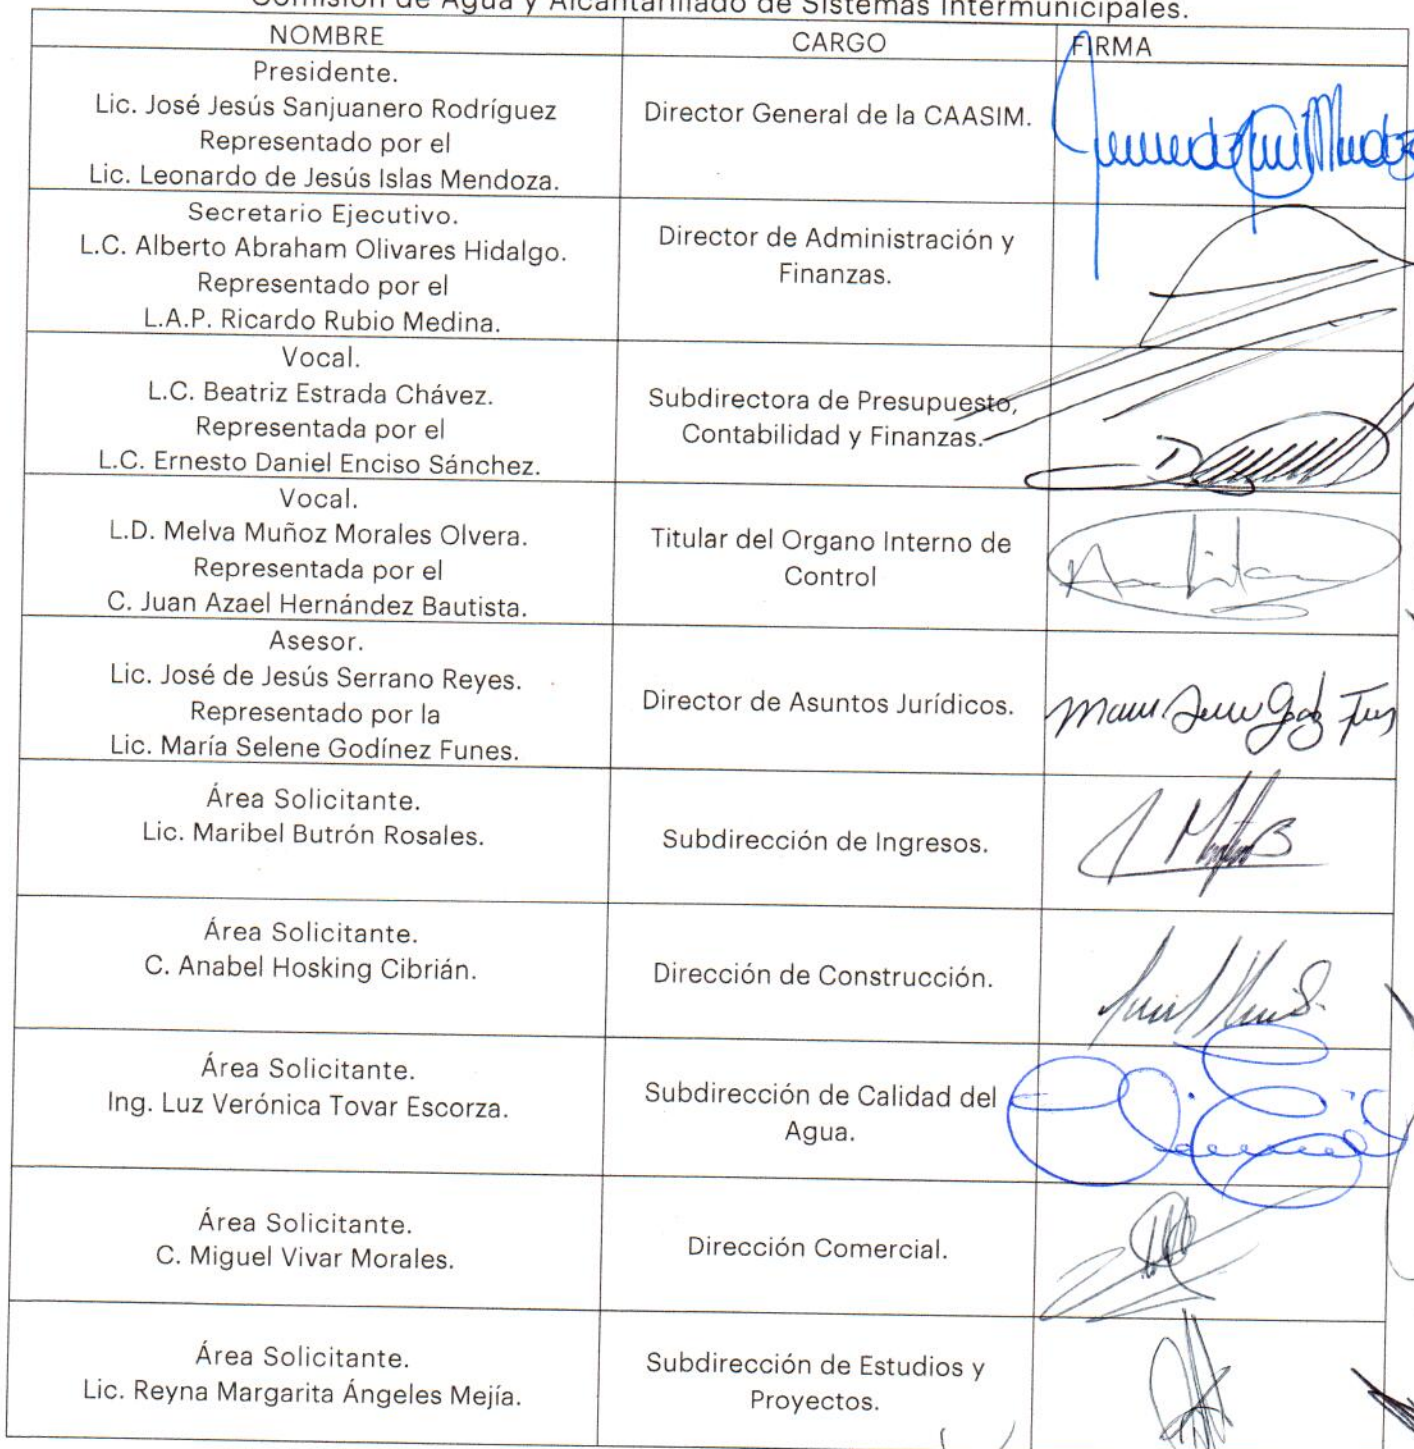 Comisión de Agua y Alcantarillado de Sistemas Intermunicipales.
NOMBRE CARGO FIRMA
Presidente.
Lic. José Jesús Sanjuanero Rodríguez
Representado por el
Lic. Leonardo de Jesús Islas Mendoza.
Director General de la CAASIM.
Secretario Ejecutivo.
L.C. Alberto Abraham Olivares Hidalgo.
Representado por el
L.A.P. Ricardo Rubio Medina.
Director de Administración y
Finanzas.
Vocal.
L.C. Beatriz Estrada Chávez.
Representada por el
L.C. Ernesto Daniel Enciso Sánchez.
Subdirectora de Presupuesto,
Contabilidad y Finanzas.
Vocal.
L.D. Melva Muñoz Morales Olvera.
Representada por el
C. Juan Azael Hernández Bautista.
Titular del Organo Interno de
Control
Asesor.
Lic. José de Jesús Serrano Reyes.
Representado por la
Lic. María Selene Godínez Funes.
Director de Asuntos Jurídicos.
Área Solicitante.
Lic. Maribel Butrón Rosales.
Subdirección de Ingresos.
Área Solicitante.
C. Anabel Hosking Cibrián.
Dirección de Construcción.
Área Solicitante.
Ing. Luz Verónica Tovar Escorza.
Subdirección de Calidad del
Agua.
Área Solicitante.
C. Miguel Vivar Morales.
Dirección Comercial.
Área Solicitante.
Lic. Reyna Margarita Ángeles Mejía.
Subdirección de Estudios y
Proyectos.